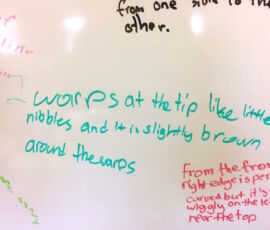 from one side to the
other.
warps at the tip like little
nibbles and it is slightly brown
around the warps
from the fron
right edge is per
curved but it's
wiggly on the le
near the top